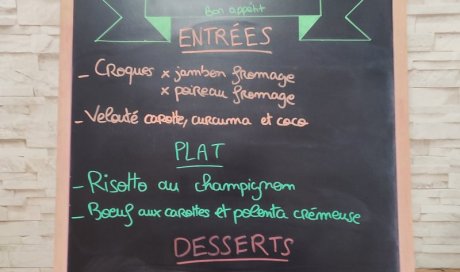 Bon appétit
ENTRÉES
- Croques x jambon fromage
x poireau fromage
- Velouté carotte, curcuma et coco
PLAT
- Risotto au champignon
- Boeuf aux carottes et polenta crémeuse
DESSERTS